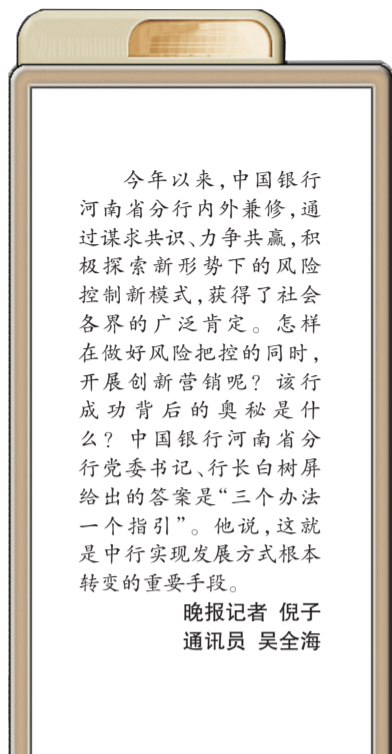 今年以来,中国银行
河南省分行内外兼修,通
过谋求共识、力争共赢,积
极探索新形势下的风险
控制新模式,获得了社会
各界的广泛肯定。怎样
在做好风险把控的同时,
开展创新营销呢？该行
成功背后的奥秘是什
么？中国银行河南省分
行党委书记、行长白树屏
给出的答案是“三个办法
一个指引”。他说,这就
是中行实现发展方式根本
转变的重要手段。
晚报记者 倪子
通讯员 吴全海